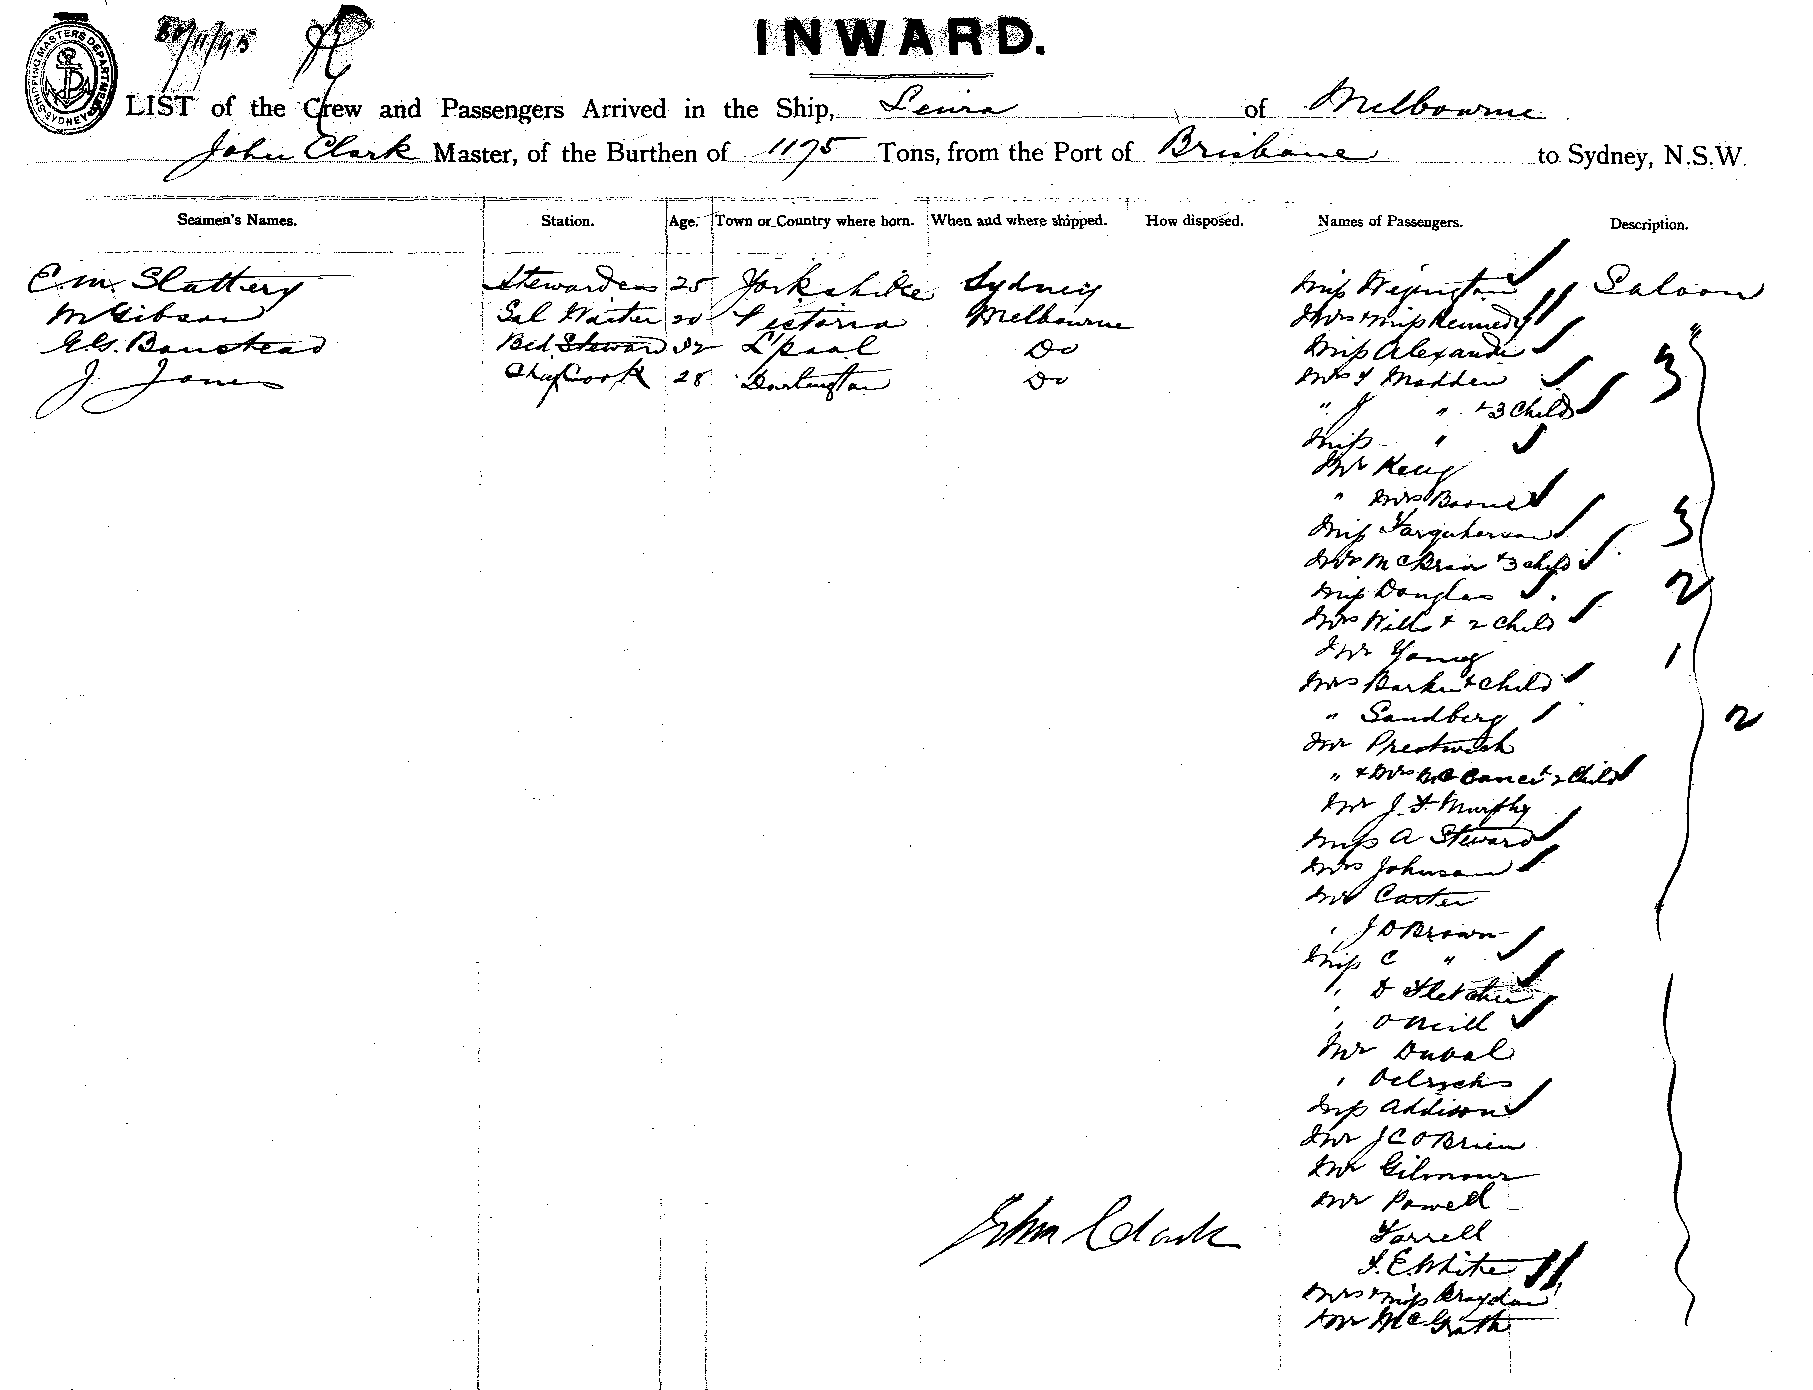 INWARD.
SHIPPING MASTERS DEPARTMENT SYDNEY
/11/95
LIST of the Crew and Passengers Arrived in the Ship, Leura of Melbourne
John Clark Master, of the Burthen of 1175 Tons, from the Port of Brisbane to Sydney, N.S.W.
Seamen's Names. Station. Age. Town or Country where born. When and where shipped. How disposed. Names of Passengers. Description.
E.M. Slattery Stewardess 25 Yorkshire Sydney Miss Saloon
M Gibson Sal Waiter 20 Victoria Melbourne Mrs & Miss Kennedy "
Banstead Bed Steward 32 L'pool Do Miss Alexander 3
J. Jones Cook 28 Darlington Do Mrs Madden
" J " + 3 Childs
Miss "
Mr Kelly
" Mrs
Miss Farquharson 3
+ 3 Child
Miss Douglas 2
Mrs Wills + 2 Child
Mr Young 1
Mrs Barker + Child
" Sandberg 2
Mr Prestwich
" + Mrs 2 Child
Mr J. F. Murphy
Miss A Steward
Mrs Johnson
Mr Carter
" J D Brown
Miss C "
" D Fletcher
" O'Neill
Mr Duval
" Oelrichs
Miss Addison
Mr J C O'Brien
Mr Gilmour
Mr Powell
Farrell
E. White
Mrs & Miss
Mr McGrath
John Clark